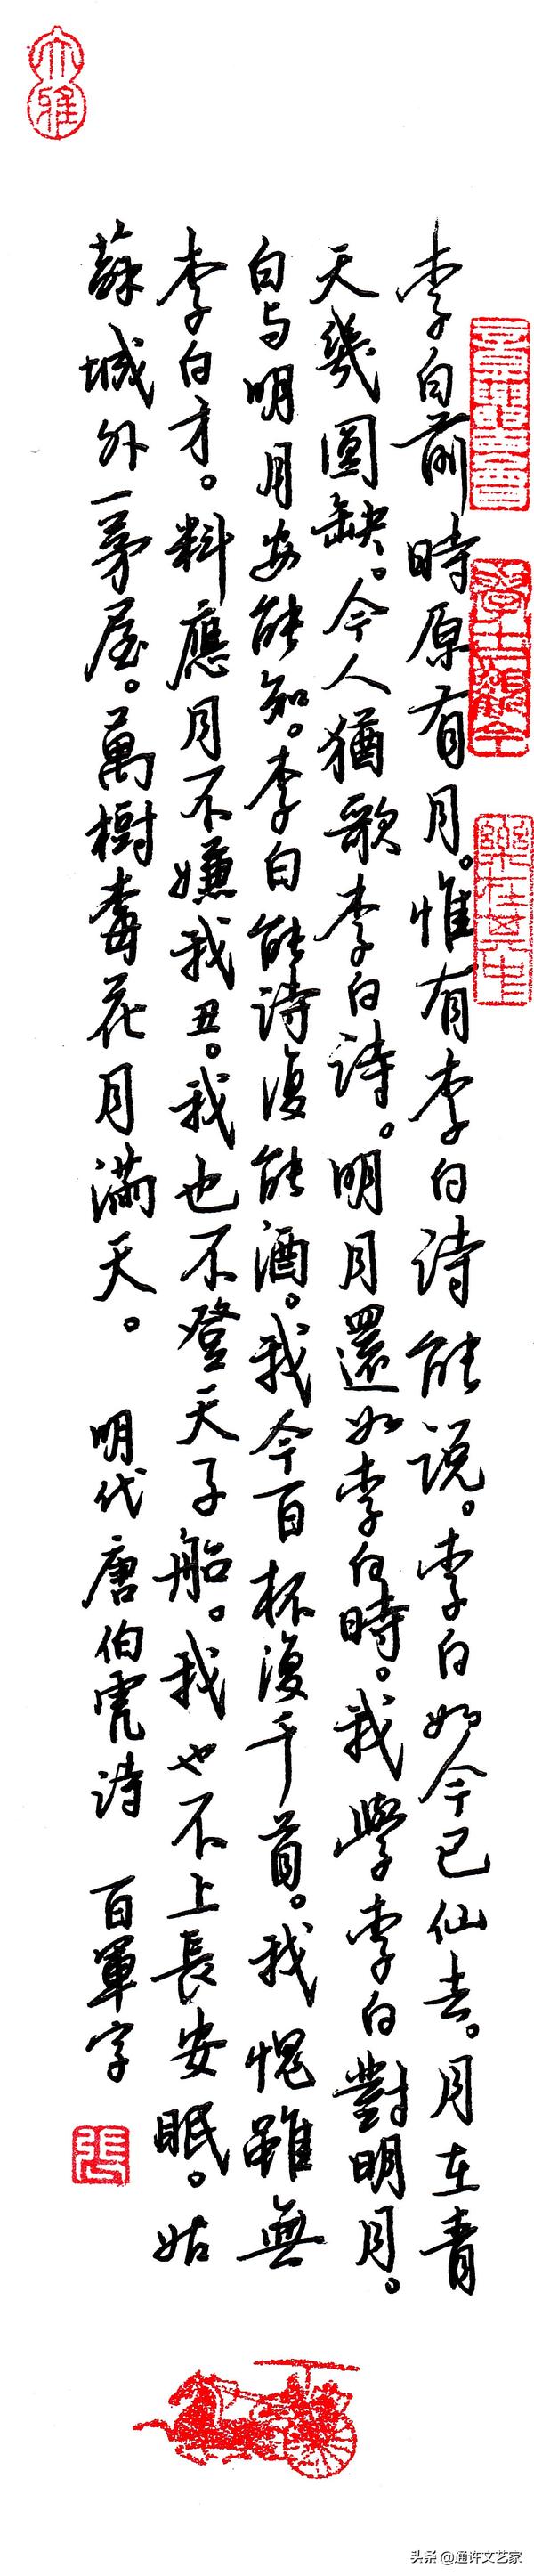 大雅
李白前時原有月。惟有李白詩能説。李白如今已仙去。月在青
天幾圓缺。今人猶歌李白詩。明月還如李白時。我學李白對明月。
白与明月安能知。李白能詩復能酒。我今百杯復千首。我愧雖無
李白才。料應月不嫌我丑。我也不登天子船。我也不上長安眠。姑
蘇城外一茅屋。萬樹梅花月滿天。 明代唐伯虎詩 百軍字
樂在其中
張
头条 @通许文艺家